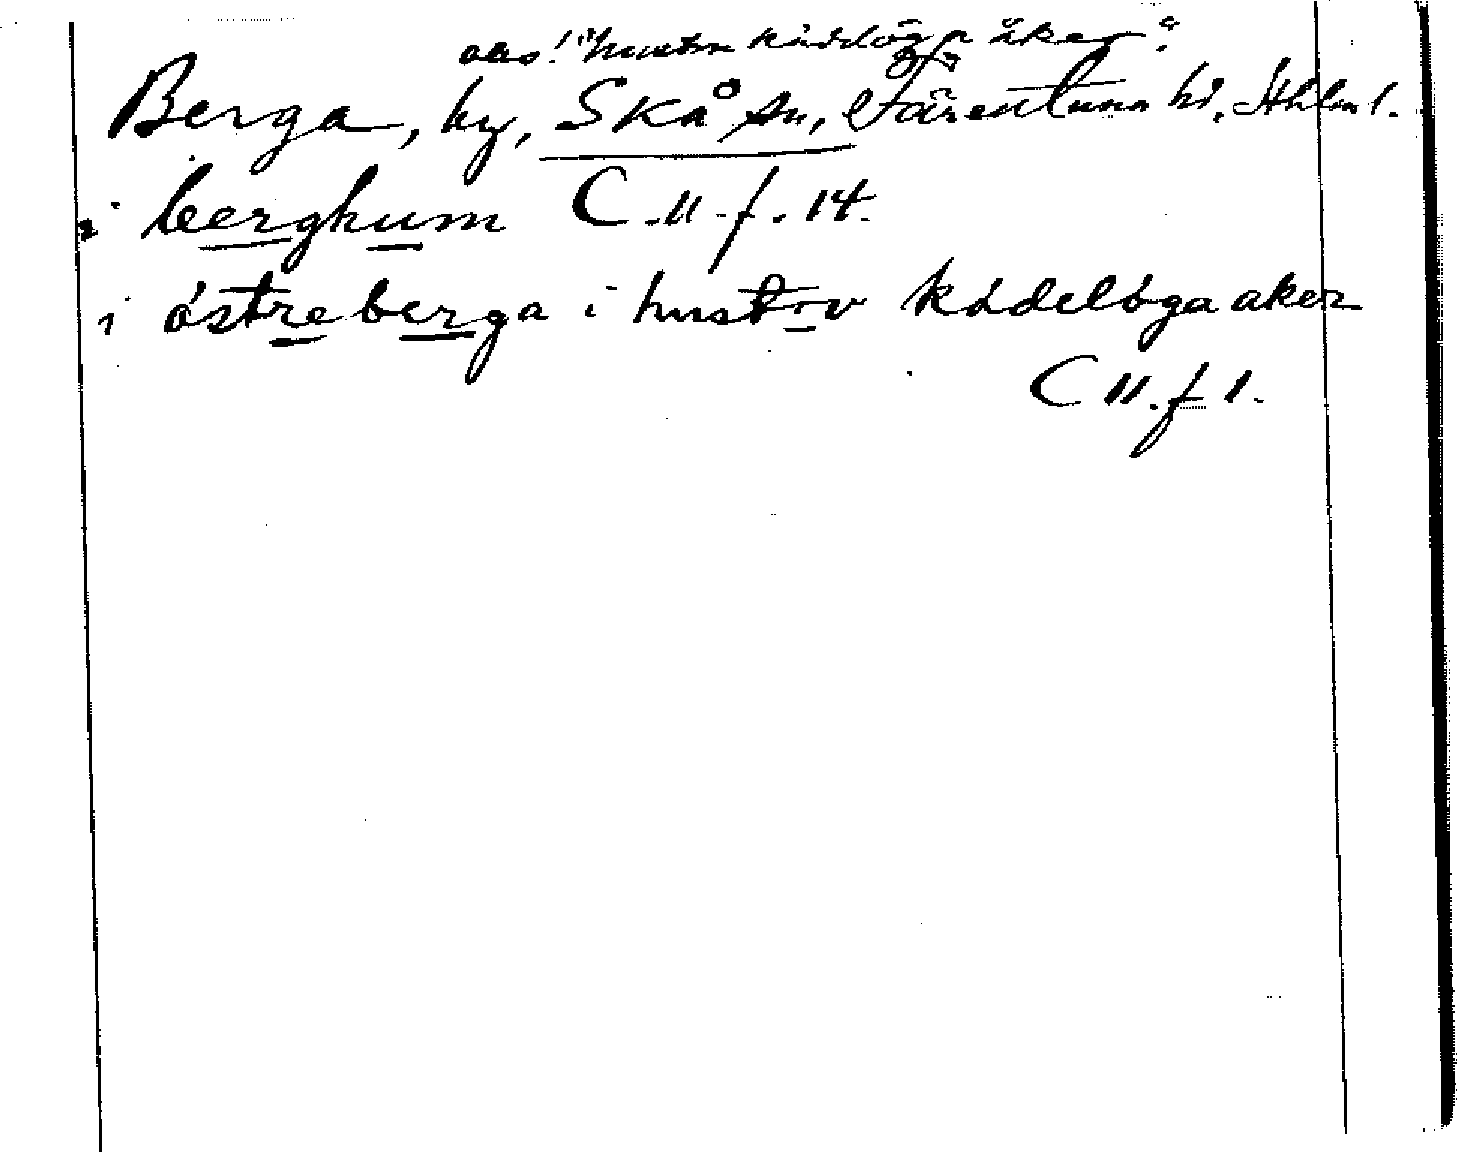 obs! "hustru kädelöga åker".
Berga, by, Skå sn, Färentuna hd. Sthlm l.
i berghum C 11 f. 14.
i östreberga i hustrv kädelöga aker
C 11. f 1.